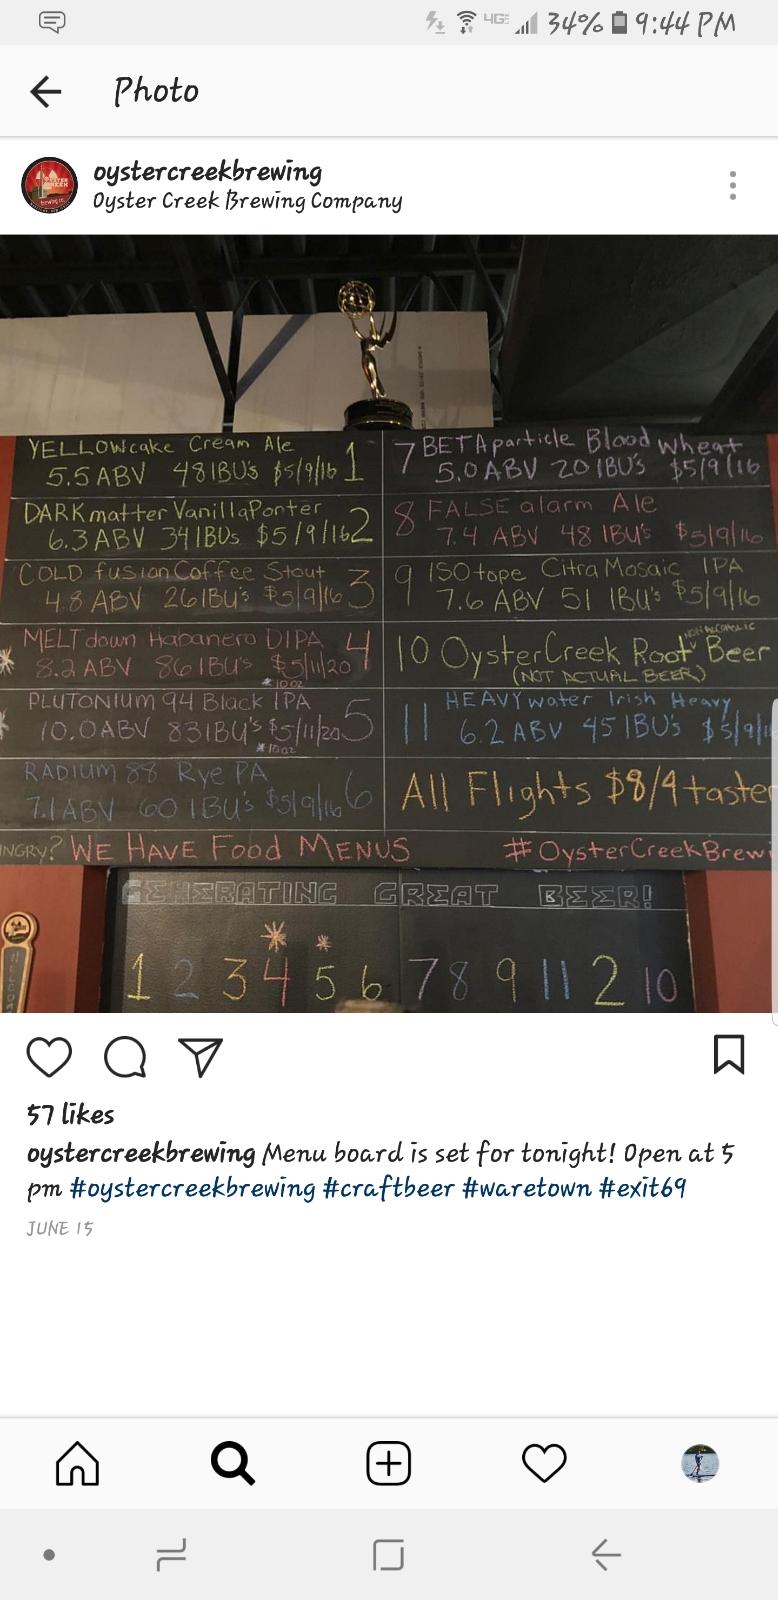 4GE 34% 9:44 PM
Photo
oystercreekbrewing
Oyster Creek Brewing Company
YELLOWcake Cream Ale 1
5.5 ABV 48 IBU's $5/9/16
DARKmatter Vanilla Porter 2
6.3 ABV 34 IBUs $5/9/16
COLD fusion Coffee Stout 3
4.8 ABV 26 IBU's $5/9/16
MELTdown Habanero DIPA 4
8.2 ABV 86 IBU's $5/11/20
*10oz
PLUTONIUM 94 Black IPA 5
10.0 ABV 83 IBU's $5/11/20
*10oz
RADIUM 88 Rye PA 6
7.1 ABV 60 IBU's $5/9/16
7 BETAparticle Blood Wheat
5.0 ABV 20 IBU'S $5/9/16
8 FALSE alarm Ale
7.4 ABV 48 IBU's $5/9/16
9 ISOtope Citra Mosaic IPA
7.6 ABV 51 IBU's $5/9/16
NON ALCOHOLIC
10 OysterCreek Root Beer
(NOT ACTUAL BEER)
11 HEAVYwater Irish Heavy
6.2 ABV 45 IBU's $5/9/1
All Flights $8/4 taster
NGRY? WE HAVE Food MENUS #OysterCreekBrewi
GENERATING GREAT BEER!
1 2 3 4 5 6 7 8 9 11 2 10
57 likes
oystercreekbrewing Menu board is set for tonight! Open at 5
pm #oystercreekbrewing #craftbeer #waretown #exit69
JUNE 15